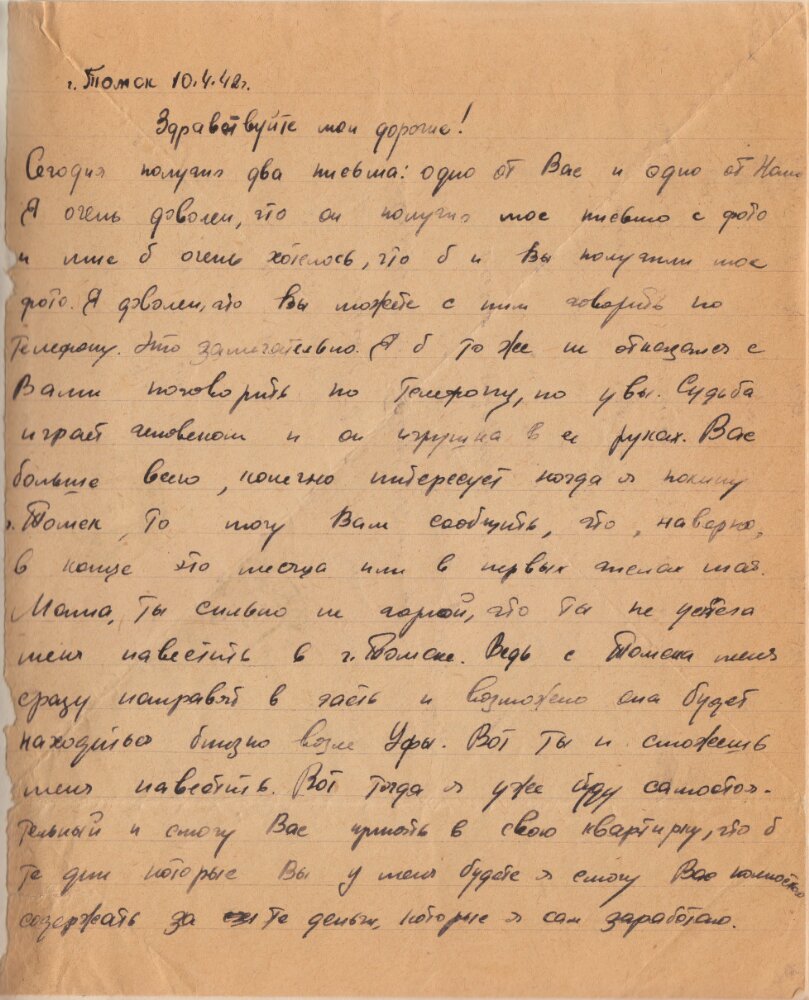 г. Томск 10.4.42г.
Здравствуйте мои дорогие!
Сегодня получил два письма: одно от Вас и одно от
Я очень доволен, что он получил мое письмо с фото
и мне б очень хотелось, что б и Вы получили мое
фото. Я доволен, что Вы можете с ним говорить по
телефону. Это замечательно. Я б то же не отказался с
Вами поговорить по телефону, но увы. Судьба
играет человеком и он игрушка в ее руках. Вас
больше всего, конечно интересует когда я покину
г. Томск, то могу Вам сообщить, что, наверно,
в конце это месяца или в первых числах мая.
Мама, ты сильно не горюй, что ты не успела
меня навестить в г. Томске. Ведь с Томска меня
сразу направят в часть и возможно она будет
находиться близко возле Уфы. Вот ты и сможешь
меня навестить. Вот тогда я уже буду самостоя-
тельный и смогу Вас принять в свою квартирку, что б
те дни которые Вы у меня будете я смогу Вас полностью
содержать за те деньги, которые я сам заработаю.